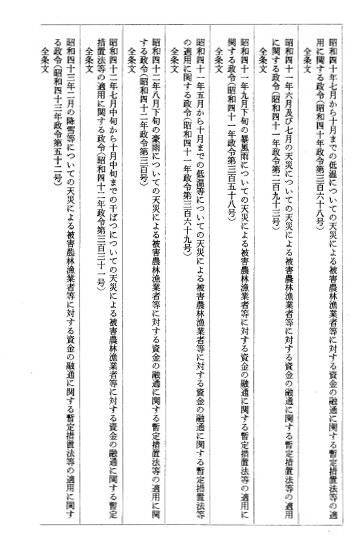 昭和四十年七月から十月までの低温についての天災による被害農林漁業者等に対する資金の融通に関する暫定措置法等の適
用に関する政令(昭和四十年政令第三百六十八号)
全条文
昭和四十一年六月及び七月の天災についての天災による被害農林漁業者等に対する資金の融通に関する暫定措置法等の適用
に関する政令(昭和四十一年政令第二百九十三号)
全条文
昭和四十一年九月下旬の暴風雨についての天災による被害農林漁業者等に対する資金の融通に関する暫定措置法等の適用に
関する政令(昭和四十一年政令第三百五十八号)
全条文
昭和四十一年五月から十月までの低温等についての天災による被害農林漁業者等に対する資金の融通に関する暫定措置法等
の適用に関する政令(昭和四十一年政令第三百六十九号)
全条文
昭和四十二年八月下旬の豪雨についての天災による被害農林漁業者等に対する資金の融通に関する暫定措置法等の適用に関
する政令(昭和四十二年政令第三百号)
全条文
昭和四十二年七月中旬から十月中旬までの干ばつについての天災による被害農林漁業者等に対する資金の融通に関する暫定
措置法等の適用に関する政令(昭和四十二年政令第三百三十一号)
全条文
昭和四十三年二月の降雪等についての天災による被害農林漁業者等に対する資金の融通に関する暫定措置法等の適用に関す
る政令(昭和四十三年政令第五十二号)
全条文